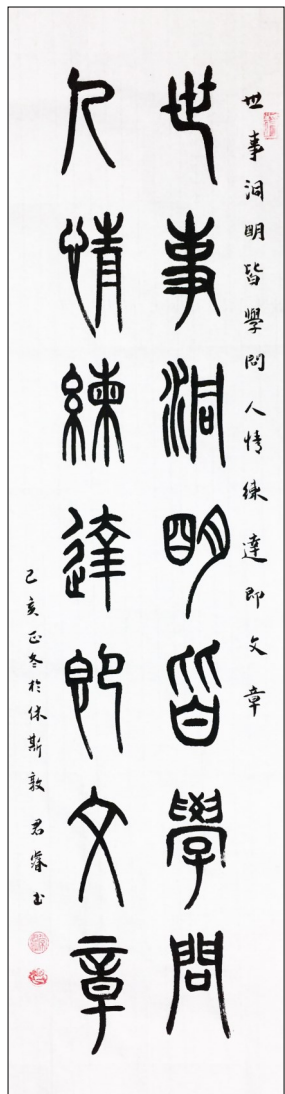 世事洞明皆學問人情練達即文章
世事洞明皆學問
人情練達即文章
己亥正冬於休斯敦 君睿书